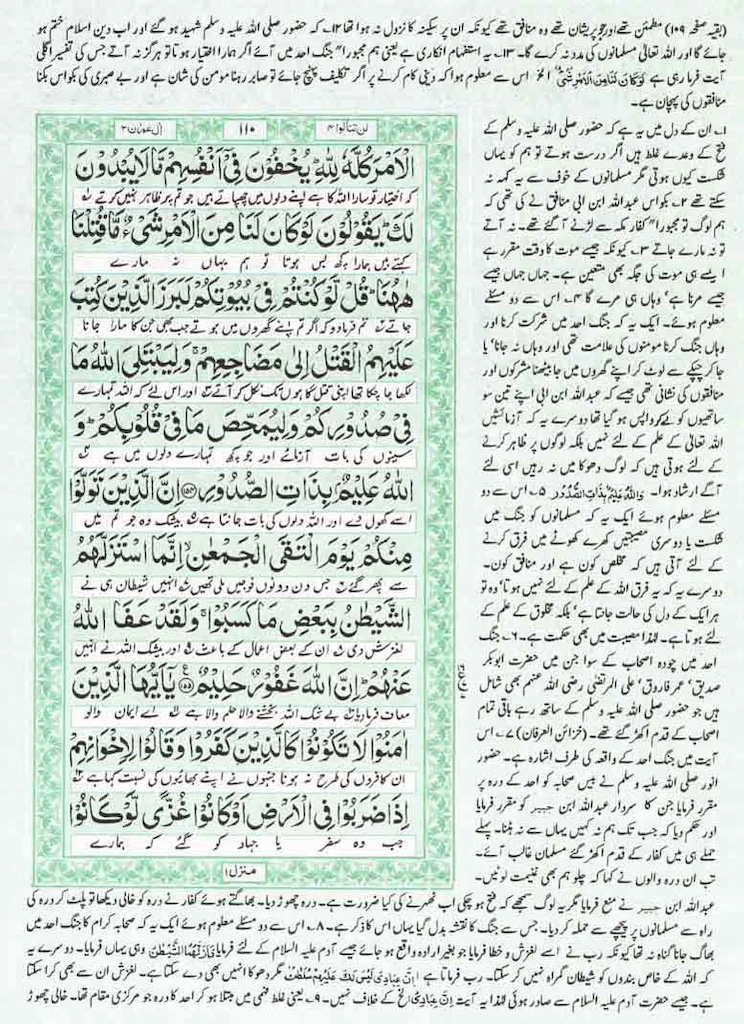 (بقیہ صفحہ ۱۰۹) مطمئن تھے اور جو پریشان تھے وہ منافق تھے کیونکہ ان پر سکینہ کا نزول نہ ہوا تھا ۱۲۔ کہ حضور صلی اللہ علیہ وسلم شہید ہو گئے اور اب دین اسلام ختم ہو
جائے گا اور اللہ تعالیٰ مسلمانوں کی مدد نہ کرے گا۔ ۱۳۔ یہ استفہام انکاری ہے یعنی ہم مجبورا" جنگ احد میں آئے اگر ہمارا اختیار ہوتا تو ہرگز نہ آتے جس کی تفسیر اگلی
آیت فرما رہی ہے لَوْ كَانَ لَنَا مِنَ الْأَمْرِ شَيْءٌ الخ اس سے معلوم ہوا کہ دینی کام کرنے پر اگر تکلیف پہنچ جائے تو صابر رہنا مومن کی شان ہے اور بے صبری کی بکواس بکنا
منافقوں کی پہچان ہے۔
لن تنالوا ۴
۱۱۰
اٰل عمرٰن ۳
الْاَمْرَ كُلَّهٗ لِلّٰهِ ؕ يُخْفُوْنَ فِيْۤ اَنْفُسِهِمْ مَّا لَا يُبْدُوْنَ
کہ اختیار تو سارا اللہ کا ہے اپنے دلوں میں چھپاتے ہیں جو تم پر ظاہر نہیں کرتے
لَكَ ؕ يَقُوْلُوْنَ لَوْ كَانَ لَنَا مِنَ الْاَمْرِ شَيْءٌ مَّا قُتِلْنَا
کہتے ہیں ہمارا کچھ بس ہوتا تو ہم یہاں نہ مارے
هٰهُنَا ؕ قُلْ لَّوْ كُنْتُمْ فِيْ بُيُوْتِكُمْ لَبَرَزَ الَّذِيْنَ كُتِبَ
جاتے تم فرما دو کہ اگر تم اپنے گھروں میں ہوتے جب بھی جن کا مارا جانا
عَلَيْهِمُ الْقَتْلُ اِلٰى مَضَاجِعِهِمْ ۚ وَلِيَبْتَلِيَ اللّٰهُ مَا
لکھا جا چکا تھا اپنی قتل گاہوں تک نکل کر آتے اور اس لئے کہ اللہ تمہارے
فِيْ صُدُوْرِكُمْ وَلِيُمَحِّصَ مَا فِيْ قُلُوْبِكُمْ ؕ وَ
سینوں کی بات آزمائے اور جو کچھ تمہارے دلوں میں ہے
اللّٰهُ عَلِيْمٌۢ بِذَاتِ الصُّدُوْرِ ﴿۱۵۴﴾ اِنَّ الَّذِيْنَ تَوَلَّوْا
اسے کھول دے اور اللہ دلوں کی بات جانتا ہے بیشک وہ جو تم میں
مِنْكُمْ يَوْمَ الْتَقَى الْجَمْعٰنِ ۙ اِنَّمَا اسْتَزَلَّهُمُ
سے پھر گئے جس دن دونوں فوجیں ملی تھیں انہیں شیطان ہی نے
الشَّيْطٰنُ بِبَعْضِ مَا كَسَبُوْا ۚ وَلَقَدْ عَفَا اللّٰهُ
لغزش دی ان کے بعض اعمال کے باعث اور بیشک اللہ نے انہیں
عَنْهُمْ ؕ اِنَّ اللّٰهَ غَفُوْرٌ حَلِيْمٌ ﴿۱۵۵﴾ يٰۤاَيُّهَا الَّذِيْنَ
معاف فرما دیا بے شک اللہ بخشنے والا حلم والا ہے اے ایمان والو
اٰمَنُوْا لَا تَكُوْنُوْا كَالَّذِيْنَ كَفَرُوْا وَقَالُوْا لِاِخْوَانِهِمْ
ان کافروں کی طرح نہ ہونا جنہوں نے اپنے بھائیوں کی نسبت کہا
اِذَا ضَرَبُوْا فِي الْاَرْضِ اَوْ كَانُوْا غُزًّى لَّوْ كَانُوْا
جب وہ سفر یا جہاد کو گئے کہ ہمارے
منزل ۱
۱۔ ان کے دل میں یہ ہے کہ حضور صلی اللہ علیہ وسلم کے
فتح کے وعدے غلط ہیں اگر درست ہوتے تو ہم کو یہاں
شکست کیوں ہوتی مگر مسلمانوں کے خوف سے یہ کہہ نہ
سکتے تھے ۲۔ بکواس عبداللہ ابن ابی منافق نے کی تھی کہ
ہم لوگ تو مجبورا" کفار مکہ سے لڑنے آ گئے تھے۔ نہ آتے
تو نہ مارے جاتے ۳۔ کیونکہ جیسے موت کا وقت مقرر ہے
ایسے ہی موت کی جگہ بھی متعین ہے۔ جہاں جہاں جیسے
جیسے مرنا ہے' وہاں ہی مرے گا ۴۔ اس سے دو مسئلے
معلوم ہوئے۔ ایک یہ کہ جنگ احد میں شرکت کرنا اور
وہاں جنگ کرنا مومنوں کی علامت تھی اور وہاں نہ جانا' یا
جا کر چپکے سے لوٹ کر اپنے گھروں میں جا بیٹھنا مشرکوں اور
منافقوں کی نشانی تھی جیسے کہ عبداللہ ابن ابی اپنے تین سو
ساتھیوں کو لے کر واپس ہو گیا تھا دوسرے یہ کہ آزمائشیں
اللہ تعالیٰ کے علم کے لئے نہیں بلکہ لوگوں پر ظاہر کرنے
کے لئے ہوتی ہیں کہ لوگ دھوکا میں نہ رہیں اسی لئے
آگے ارشاد ہوا۔ وَاللّٰهُ عَلِيْمٌۢ بِذَاتِ الصُّدُوْرِ ۵۔ اس سے دو
مسئلے معلوم ہوئے ایک یہ کہ مسلمانوں کو جنگ میں
شکست یا دوسری مصیبتیں کھرے کھوٹے میں فرق کرنے
کے لئے آتی ہیں کہ مخلص کون ہے اور منافق کون۔
دوسرے یہ کہ یہ فرق اللہ کے علم کے لئے نہیں ہوتا' وہ تو
ہر ایک کے دل کی حالت جانتا ہے' بلکہ مخلوق کے علم کے
لئے ہوتا ہے۔ لہٰذا مصیبت میں بھی حکمت ہے۔ ۶۔ جنگ
احد میں چودہ اصحاب کے سوا جن میں حضرت ابوبکر
صدیق' عمر فاروق' علی المرتضیٰ رضی اللہ عنہم بھی شامل
ہیں جو حضور صلی اللہ علیہ وسلم کے ساتھ رہے باقی تمام
اصحاب کے قدم اکھڑ گئے تھے۔ (خزائن العرفان) ۷۔ اس
آیت میں جنگ احد کے واقعہ کی طرف اشارہ ہے۔ حضور
انور صلی اللہ علیہ وسلم نے بیس صحابہ کو احد کے درہ پر
مقرر فرمایا جن کا سردار عبداللہ ابن جبیر کو مقرر فرمایا
اور حکم دیا کہ جب تک ہم نہ کہیں یہاں سے نہ ہلنا۔ پہلے
حملے ہی میں کفار کے قدم اکھڑ گئے مسلمان غالب آئے۔
تب ان درہ والوں نے کہا کہ چلو ہم بھی غنیمت لوٹیں۔
عبداللہ ابن جبیر نے منع فرمایا مگر یہ لوگ سمجھے کہ فتح ہو چکی اب ٹھہرنے کی کیا ضرورت ہے۔ درہ چھوڑ دیا۔ بھاگتے ہوئے کفار نے درہ کو خالی دیکھا تو پلٹ کر درہ کی
راہ سے مسلمانوں پر پیچھے سے حملہ کر دیا۔ جس سے جنگ کا نقشہ بدل گیا یہاں اس کا ذکر ہے۔ ۸۔ اس سے دو مسئلے معلوم ہوئے ایک یہ کہ صحابہ کرام کا جنگ احد میں
بھاگ جانا گناہ نہ تھا کیونکہ رب نے اسے لغزش و خطا فرمایا جو بغیر ارادہ واقع ہو جائے جیسے آدم علیہ السلام کے لئے فرمایا فَاَزَلَّهُمَا الشَّيْطٰنُ وہی یہاں فرمایا۔ دوسرے یہ
کہ اللہ کے خاص بندوں کو شیطان گمراہ نہیں کر سکتا۔ رب فرماتا ہے اِنَّ عِبَادِيْ لَيْسَ لَكَ عَلَيْهِمْ سُلْطٰنٌ مگر دھوکا انہیں بھی دے سکتا ہے۔ لغزش ان سے بھی کرا سکتا
ہے۔ جیسے حضرت آدم علیہ السلام سے صادر ہوئی لہٰذا یہ آیت اِنَّ عِبَادِيْ الخ کے خلاف نہیں۔ ۹۔ یعنی غلط فہمی میں مبتلا ہو کر احد کا درہ جو مرکزی مقام تھا۔ خالی چھوڑ